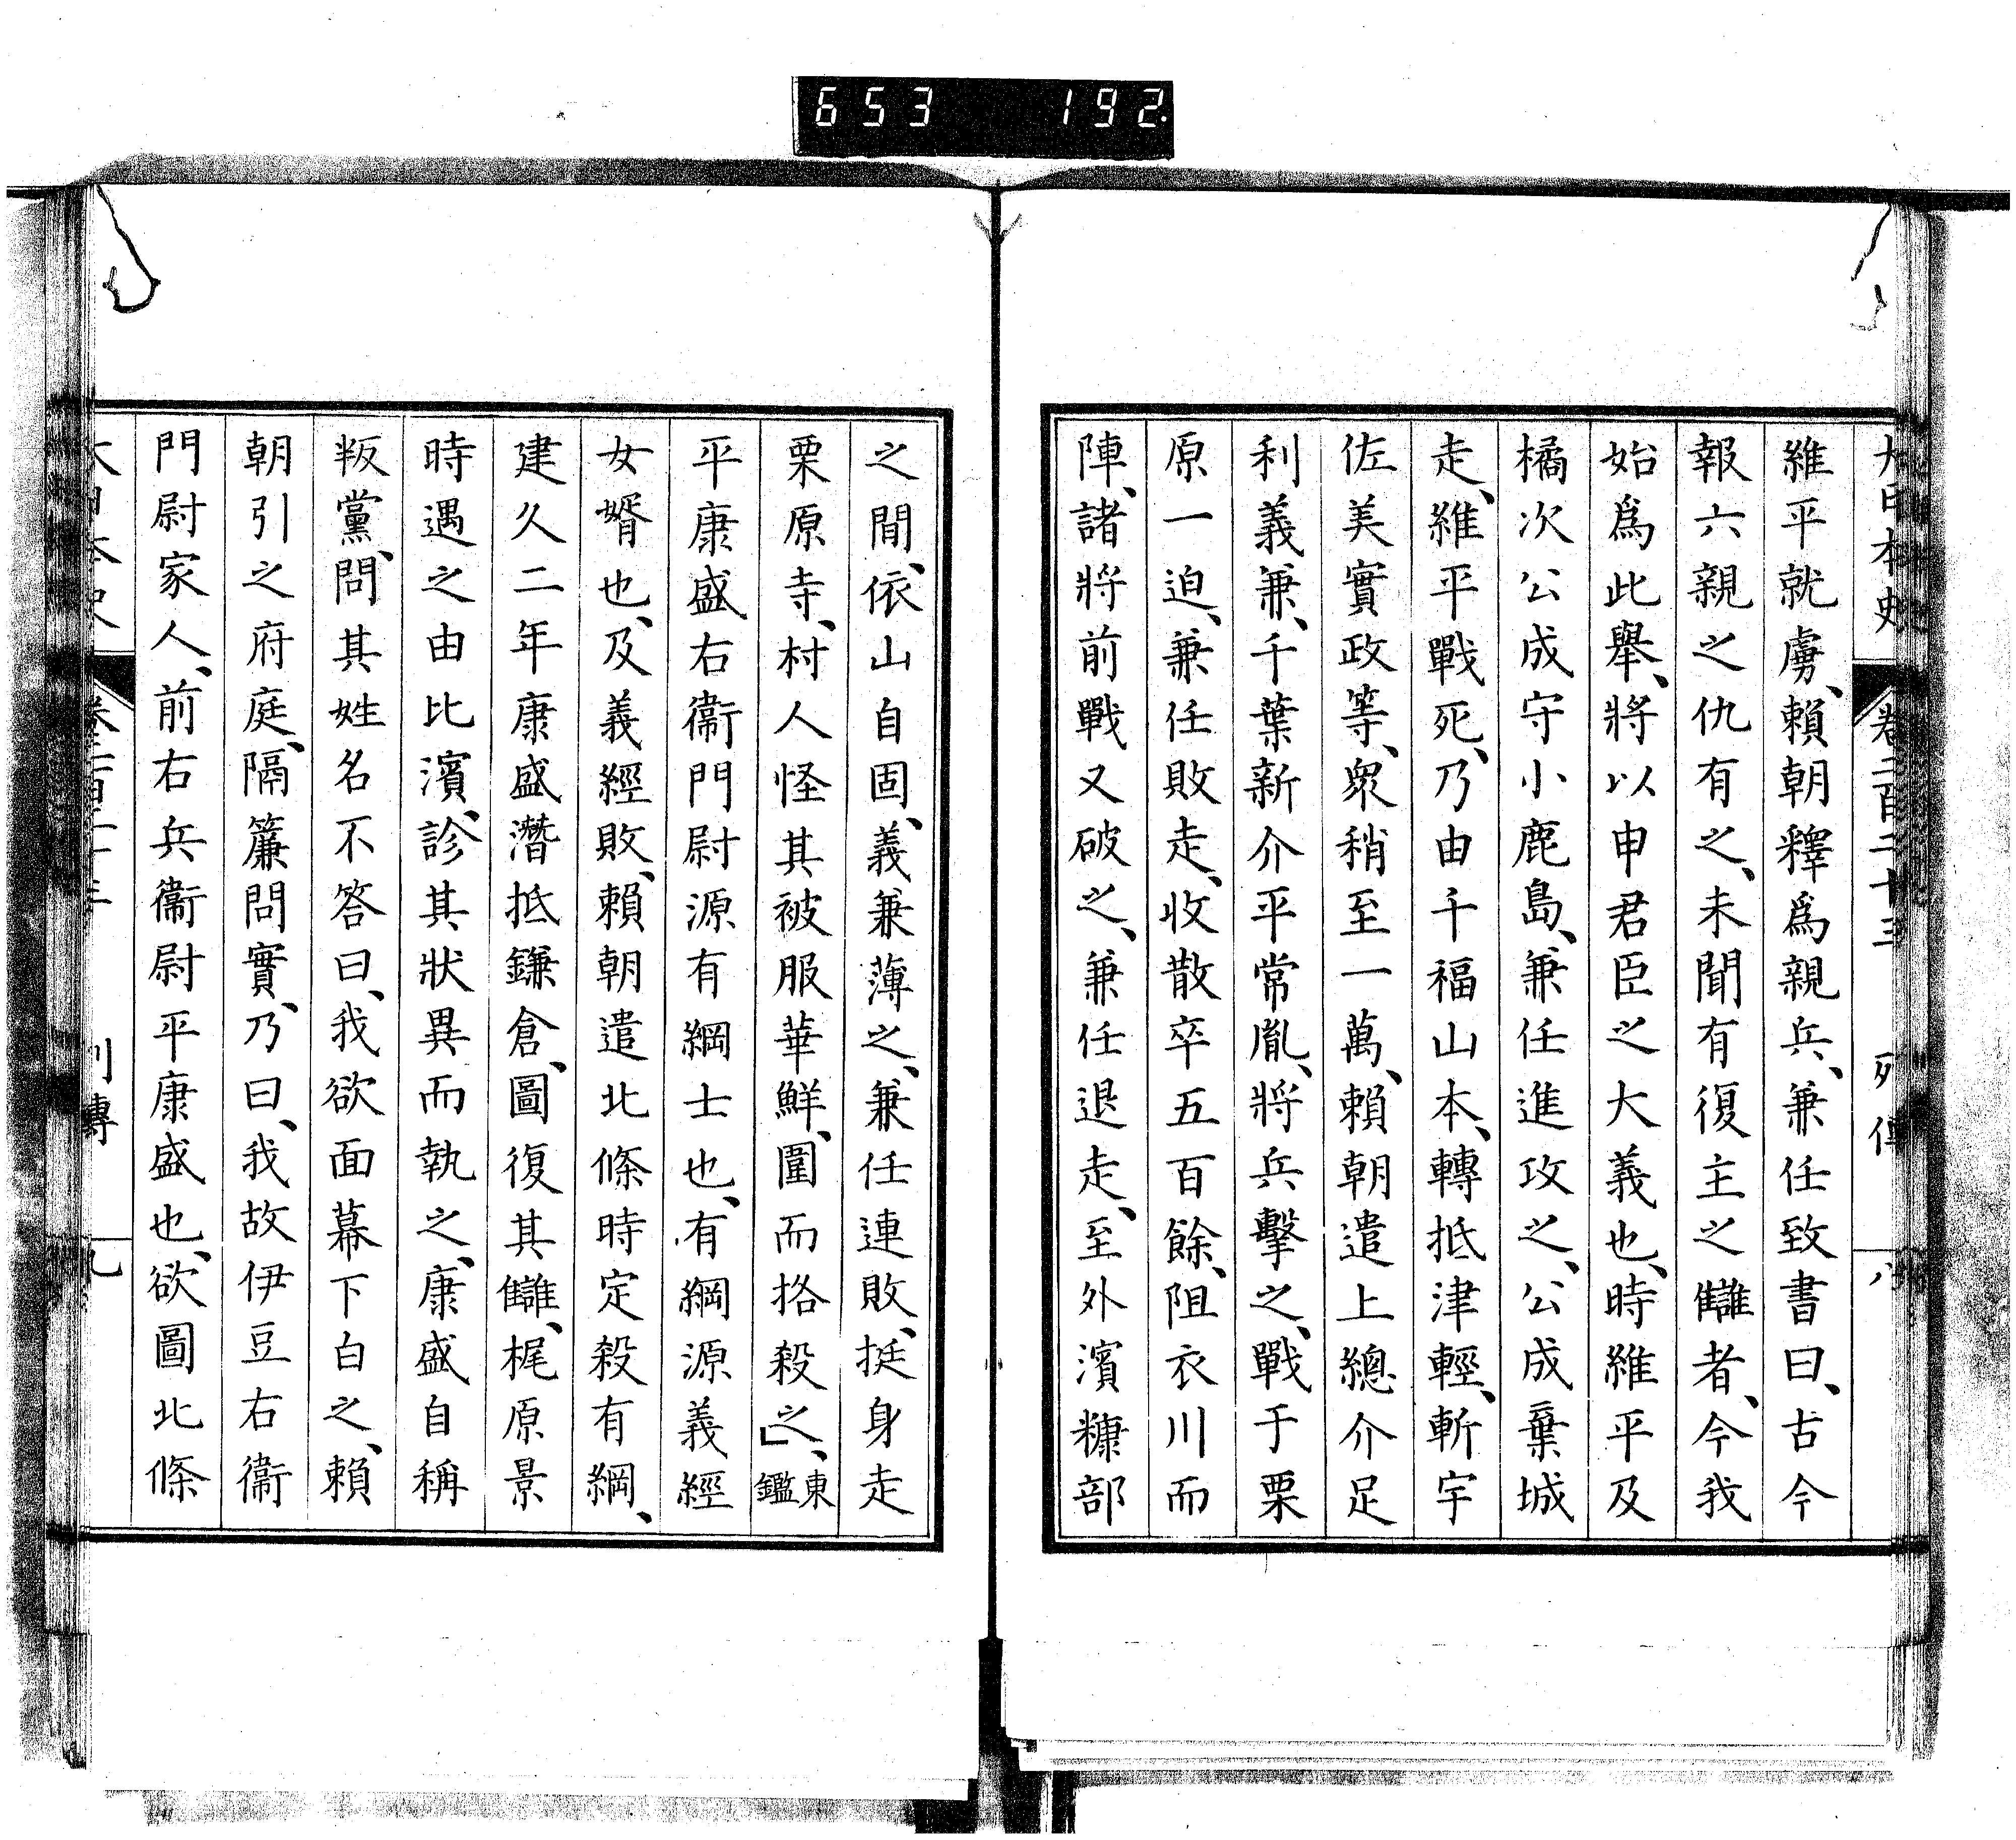 653 192
大日本史 卷二百二十三 列傳 八
維平就虜、賴朝釋爲親兵、兼任致書曰、古今
報六親之仇有之、未聞有復主之讎者、今我
始爲此舉、將以申君臣之大義也、時維平及
橘次公成守小鹿島、兼任進攻之、公成棄城
走、維平戰死、乃由千福山本、轉抵津輕、斬宇
佐美實政等、衆稍至一萬、賴朝遣上總介足
利義兼、千葉新介平常胤、將兵擊之、戰于栗
原一迫、兼任敗走、收散卒五百餘、阻衣川而
陣、諸將前戰又破之、兼任退走、至外濱糠部
之間、依山自固、義兼薄之、兼任連敗、挺身走
栗原寺、村人怪其被服華鮮、圍而挌殺之」、東鑑
平康盛右衞門尉源有綱士也、有綱源義經
女婿也、及義經敗、賴朝遣北條時定殺有綱、
建久二年康盛潛抵鎌倉、圖復其讎、梶原景
時遇之由比濱、診其狀異而執之、康盛自稱
叛黨、問其姓名不答曰、我欲面幕下白之、賴
朝引之府庭、隔簾問實、乃曰、我故伊豆右衞
門尉家人、前右兵衞尉平康盛也、欲圖北條
大日本史 卷二百二十三 列傳 九